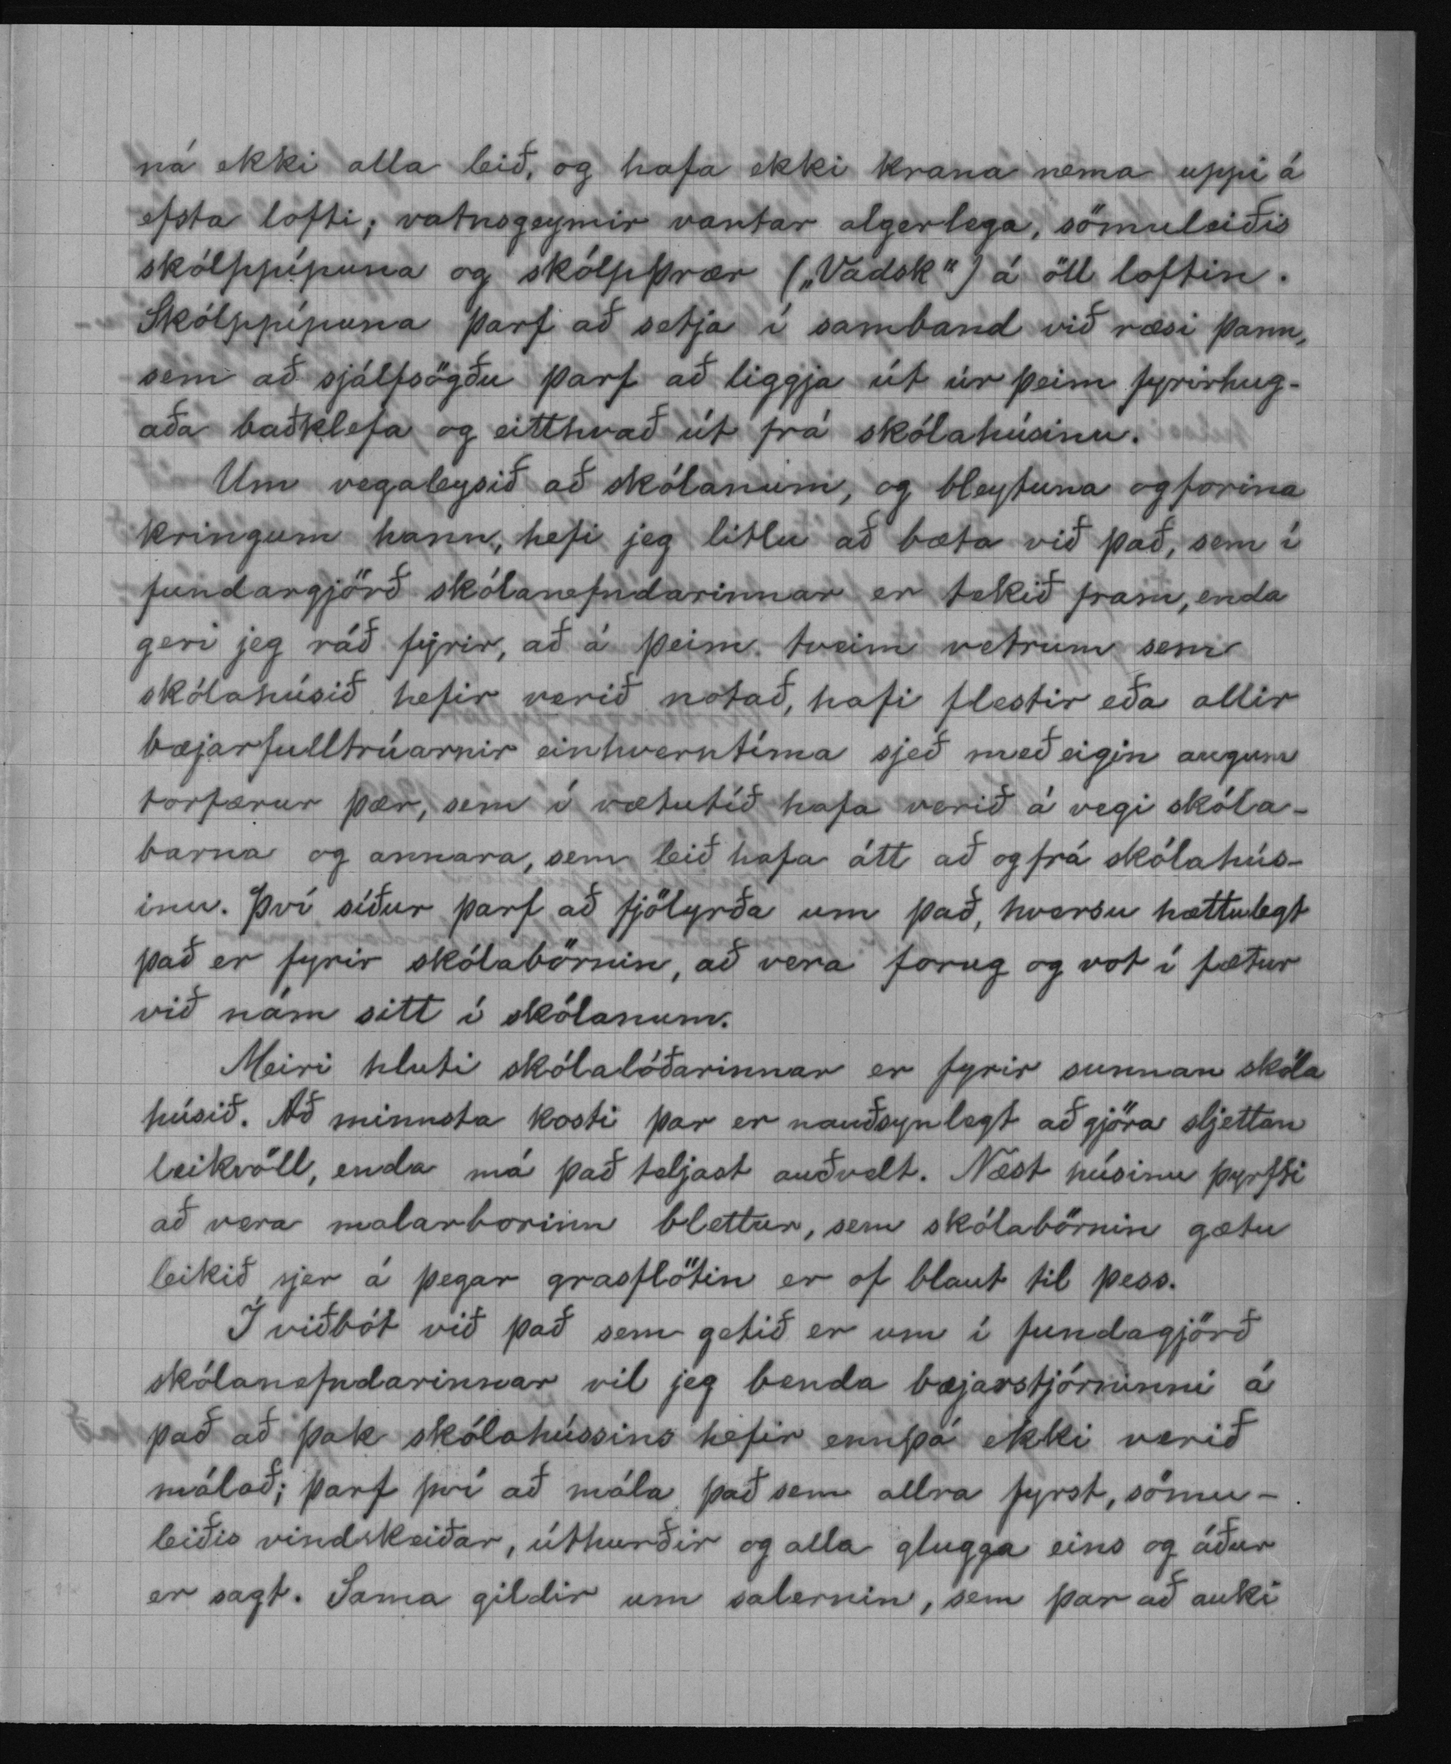 ná ekki alla leið, og hafa ekki krana nema uppi á
efsta lofti; vatnsgeymir vantar algerlega, sömuleiðis
skólppípuna og skólpþrær („Vadsk“) á öll loftin.
Skólppípuna þarf að setja í samband við ræsi þann,
sem að sjálfsögðu þarf að liggja út úr þeim fyrirhug-
aða baðklefa og eitthvað út frá skólahúsinu.
Um vegaleysið að skólanum, og bleytuna og forina
kringum hann, hefi jeg litlu að bæta við það, sem í
fundargjörð skólanefndarinnar er tekið fram, enda
geri jeg ráð fyrir, að á þeim tveim vetrum sem
skólahúsið hefir verið notað, hafi flestir eða allir
bæjarfulltrúarnir einhverntíma sjeð með eigin augum
torfærur þær, sem í vætutíð hafa verið á vegi skóla-
barna og annara, sem leið hafa átt að og frá skólahús-
inu. Því síður þarf að fjölyrða um það, hversu hættulegt
það er fyrir skólabörnin, að vera forug og vot í fætur
við nám sitt í skólanum.
Meiri hluti skólalóðarinnar er fyrir sunnan skóla
húsið. Að minnsta kosti þar er nauðsynlegt að gjöra sljettan
leikvöll, enda má það teljast auðvelt. Næst húsinu þyrfti
að vera malarborinn blettur, sem skólabörnin gætu
leikið sjer á þegar grasflötin er of blaut til þess.
Í viðbót við það sem getið er um í fundagjörð
skólanefndarinnar vil jeg benda bæjarstjórninni á
það að þak skólahússins hefir ennþá ekki verið
málað; þarf því að mála það sem allra fyrst, sömu-
leiðis vindskeiðar, úthurðir og alla glugga eins og áður
er sagt. Sama gildir um salernin, sem þar að auki